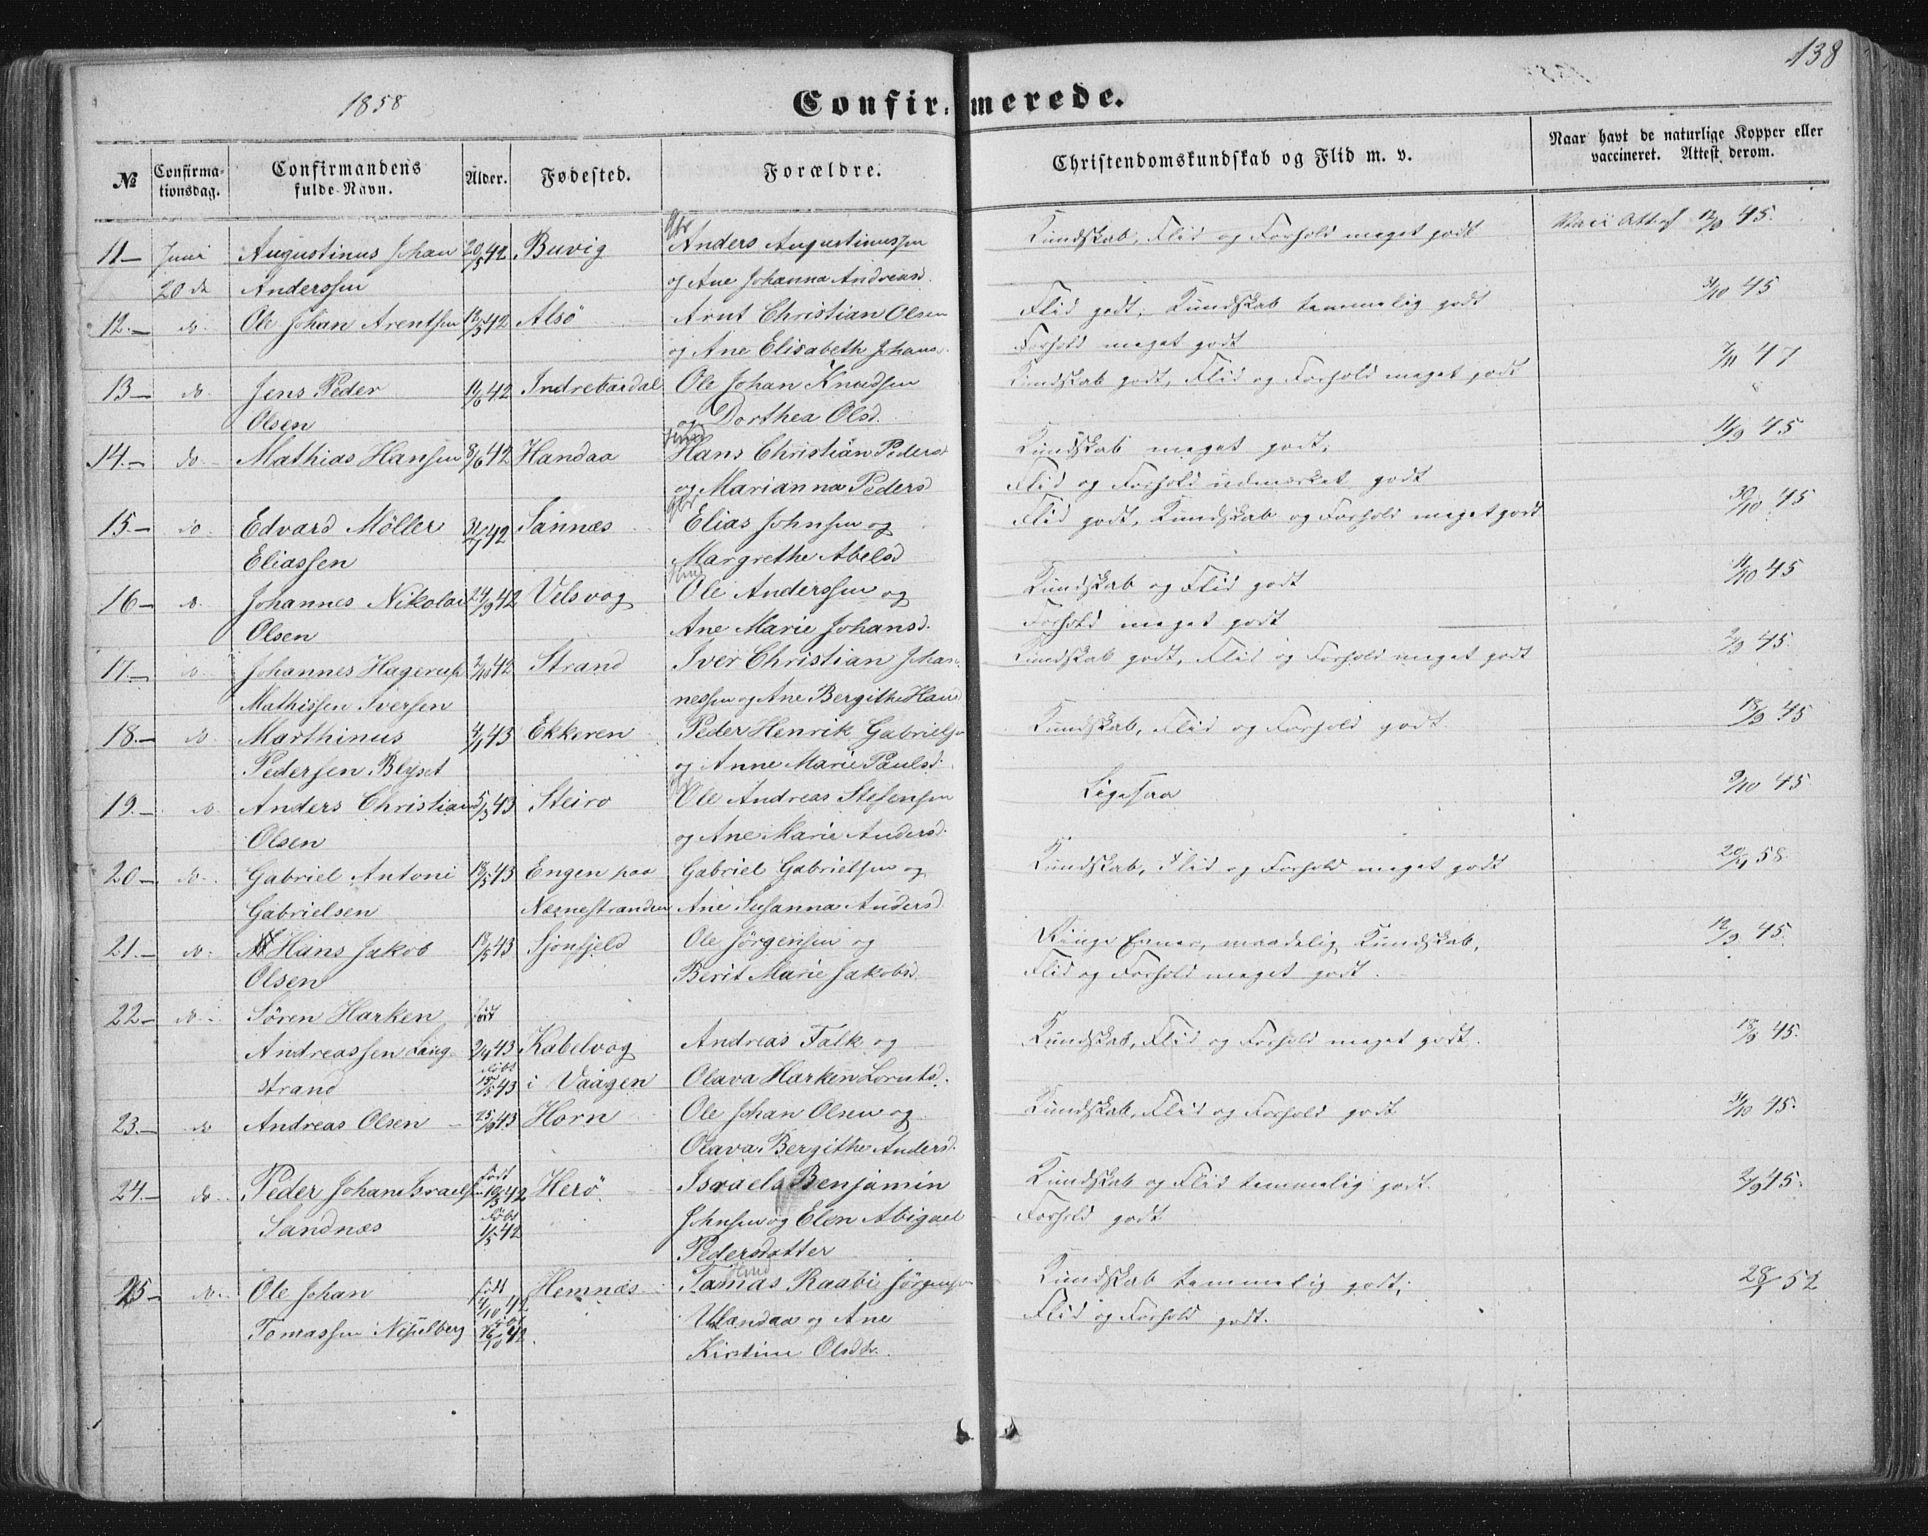 138
1858
Confirmerede.
№
Confirmationsdag.
Confirmandens fulde Navn.
Alder.
Fødested.
Forældre.
Christendomskundskab og Flid m. v.
Naar havt de naturlige Kopper eller vaccineret. Attest derom.
11 Juni Augustinus Johan 20/5 42 Buvig Gbr Anders Augustinussen Kundskab, Flid og Forhold meget godt Vacc Attest 12/9 45.
20de Anderssen og Ane Johanna Andreasd.
12. do. Ole Johan Arentsen 12/5 42 Alsö Arnt Christian Olsen Flid godt, Kundskab temmelig godt 3/10 45
og Ane Elisabeth Johans. Forhold meget godt
13 do. Jens Peder 11/6 42 Indrebardal Ole Johan Knudsen Kundskab godt, Flid og Forhold meget godt 7/11 47
Olsen og Dorthea Olsd.
14. do. Mathias Hansen 8/6 42 Handaa Hans Christian Peders Kundskab meget godt, 11/9 45
og Marianna Peders Flid og Forhold udmærket godt
15 do. Edvard Möller 31/7 42 Sannæs Gbr Elias Johnsen og Flid godt, Kundskab og Forhold meget godt 30/10 45
Eliassen Margrethe Abelsd
16 do. Johannes Nikolai 24/9 42 Velsvag Ole Anderssen og Kundskab og Flid godt 4/10 45
Olsen Ane Marie Johansd. Forhold meget godt
17. do. Johannes Hagerup 2/10 42 Strand Iver Christian Johan Kundskab godt, Flid og Forhold meget godt 2/9 45
Mathissen Iversen nessen og Ane Bergithe Hansd
18. do. Marthinus 4/1 43 Ekkeren Peder Henrik Gabrielsen Kundskab, Flid og Forhold godt 18/9 45
Pedersen Blyset og Anne Marie Paulsd.
19. do. Anders Christian 5/3 43 Steiro Ole Andreas Stefensen Ligesaa 9/10 45
Olsen og Ane Marie Andersd.
20 do. Gabriel Antoni 18/3 43 Engen paa Gabriel Gabrielsen og Kundskab, Flid og Forhold meget godt 20/4 58
Gabrielsen Næsnestranden Ane Susanna Andersd
21. do. Hans Jakob 18/5 43 Sjonfjeld Ole Jörgensen og Ringe Evner, maadelig Kundskab, 12/9 45.
Olsen Berit Marie Jakobsd. Flid og Forhold meget godt.
22 do. Sören Harken född
Andreassen Lang- 2/4 43 Kabelvog Andreas Falk og Kundskab, Flid og Forhold meget godt. 18/9 45.
strand döbt 15/5 43 i Vaagen Olava Harken Lorntsd.
23. do Andreas Olsen 25/6 43 Horn Ole Johan Olsen og Kundskab, Flid og Forhold godt 31/10 45.
Olava Bergithe Andersd.
24. do. Peder Johan Israelsen födt 19/3 42 Herö Israels Benjamin Kundskab og Flid temmelig godt. 2/9 45.
Sandnæs döbt 1/5 42 Johnsen og Elen Abigael Forhold godt
Pedersdatter
25 do. Ole Johan födt 4/10 42 Hemnæs Tomas Raabi Jörgensen Kundskab temmelig godt; 28/7 52
Tomassen Nisselberg döbt 16/10 42. Ulandaa og Ane Flid og Forhold godt.
Kirstine Olsdtr.